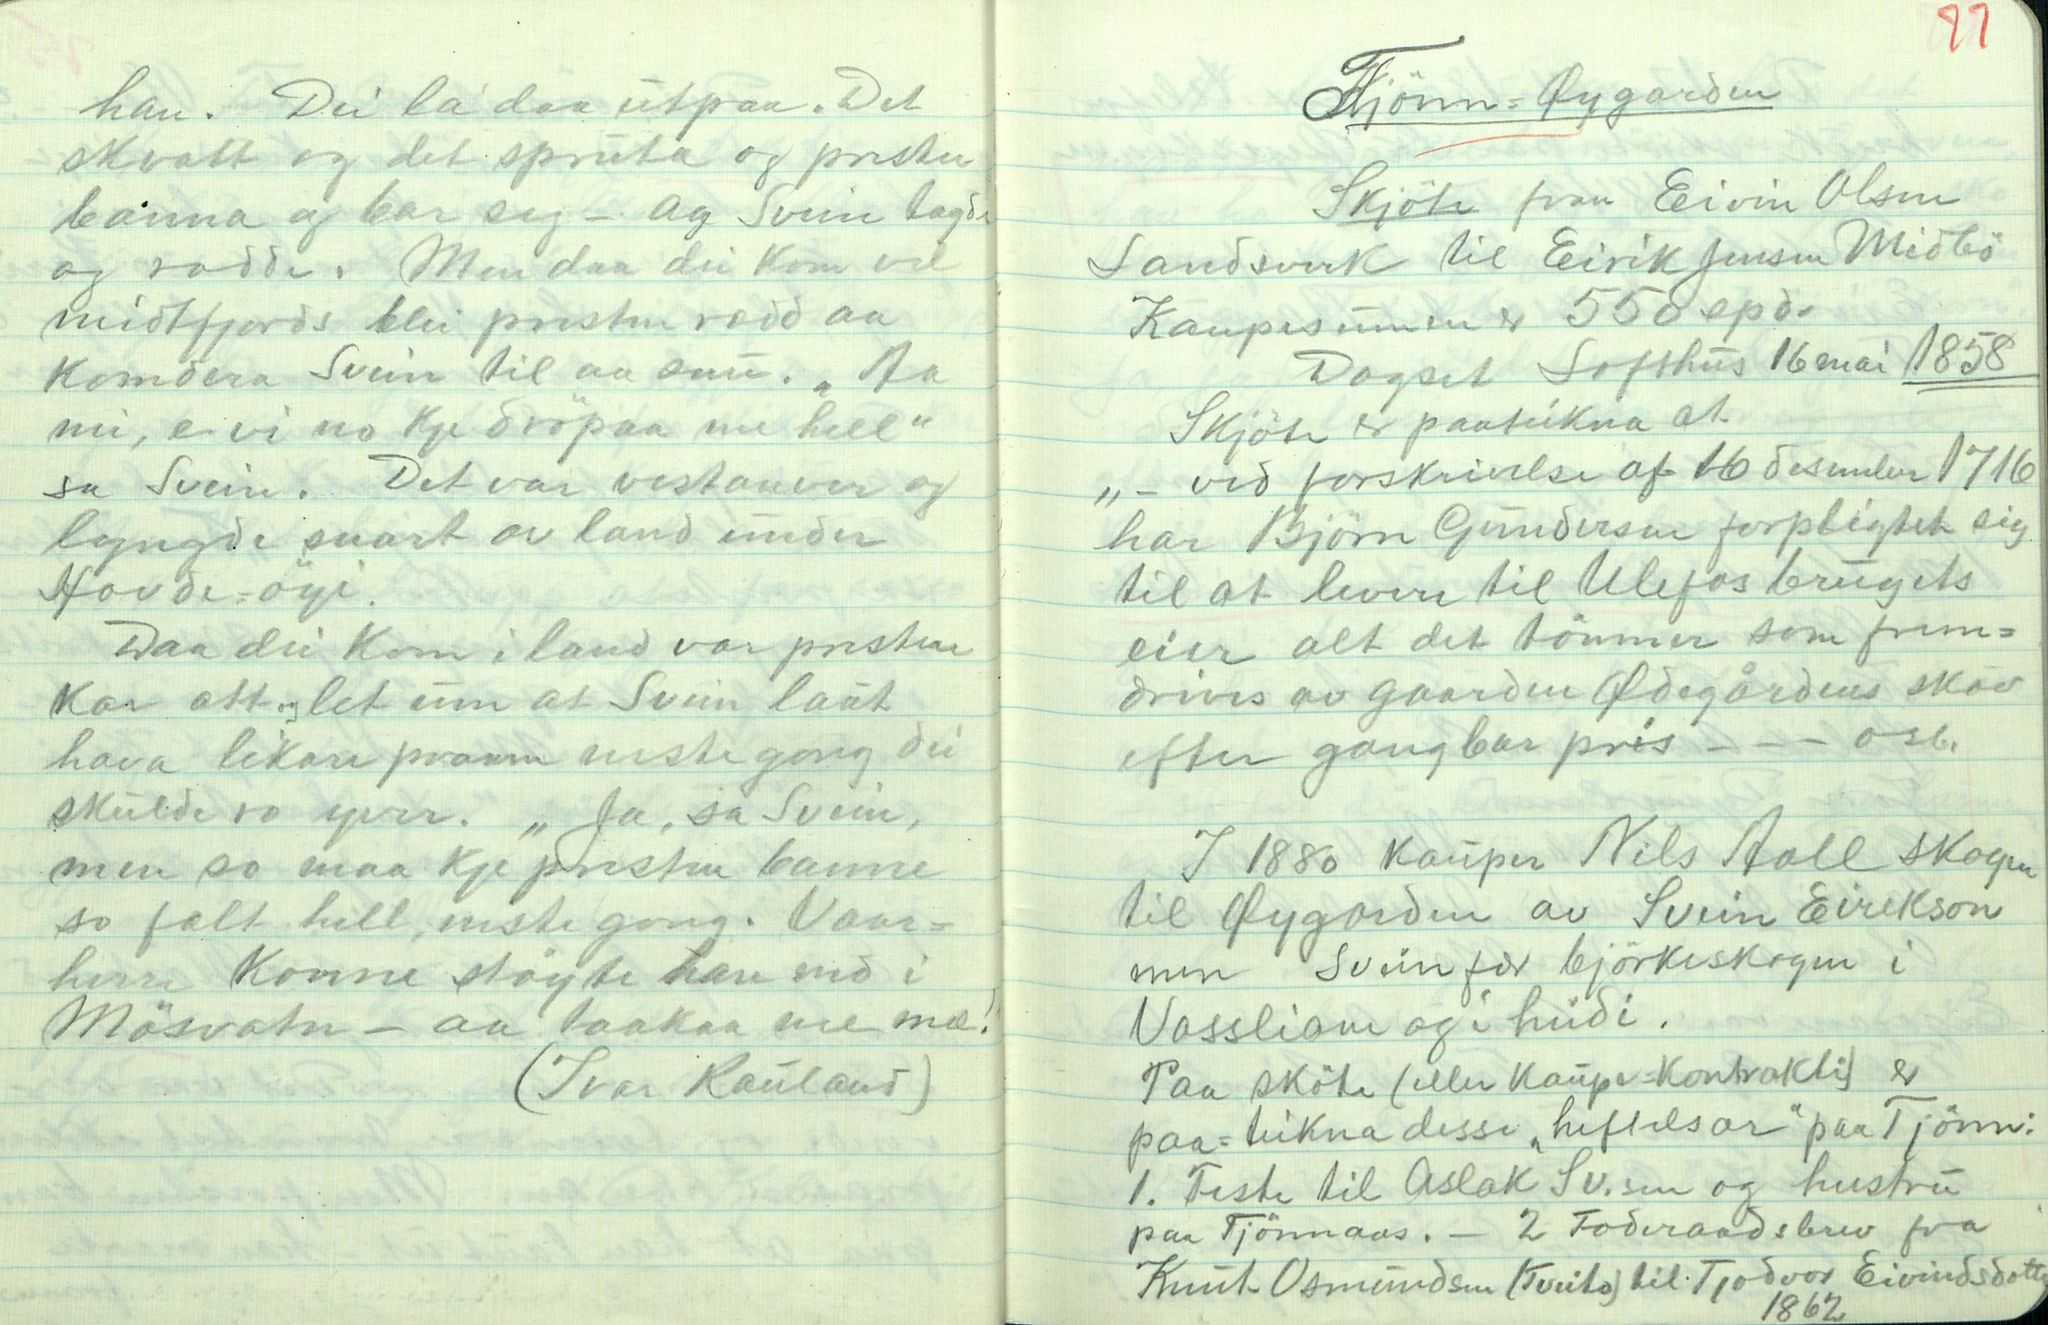 han. Dei la daa utpaa. Det
skvatt og det spruta og presten
banna og bar seg – og Svein tagde
og rodde. Men daa dei kom vel
midtfjords blei presten rædd aa
komdera Svein til aa snu. „Aa
nei, e vi no kje dröpaa me hell"
sa Svein. Det var vestanver og
lyngde snart av land under
Hovde=öyi.
Daa dei kom i land var presten
kar att og let um at Svein laut
hava likare praam neste gong dei
skulde ro yver. „Ja, sa Svein,
men so maa kje presten banne
so fælt hell, neste gong. Vaar=
herre konne støyte han ned i
Mösvatn – aa taakaa me mæ!"
(Ivar Rauland)
97
Tjönn=Øygarden
Skjöte fraa Eivin Olsen
Landsverk til Eirik Jensen Midbö
Kaupesummen er 550 spd.
Dagset Lofthus 16 mai 1858
Skjöte er paateikna at
„– ved forskrivelse af 16 desember 1716
har Björn Gundersen forpligtet sig
til at levere til Ulefos brugets
eier alt det tömmer som frem=
drives av gaarden Ødegårdens skov
efter gangbar pris – – – osb.
I 1880 kauper Nils Aall skogen
til Øygarden av Svein Eirekson
men Svein fær björkeskogen i
Vassliane og i hudi.
Paa sköte (eller kaupe=kontrakti) er
paa=teikna desse „heftelsar" paa Tjönn:
1. Feste til Aslak Sv.sen og hustru
paa Tjönnaas. – 2 Foderaadsbrev fra
Knut Osmundsen (Tveito) til Tjodvor Eivindsdotter
1862